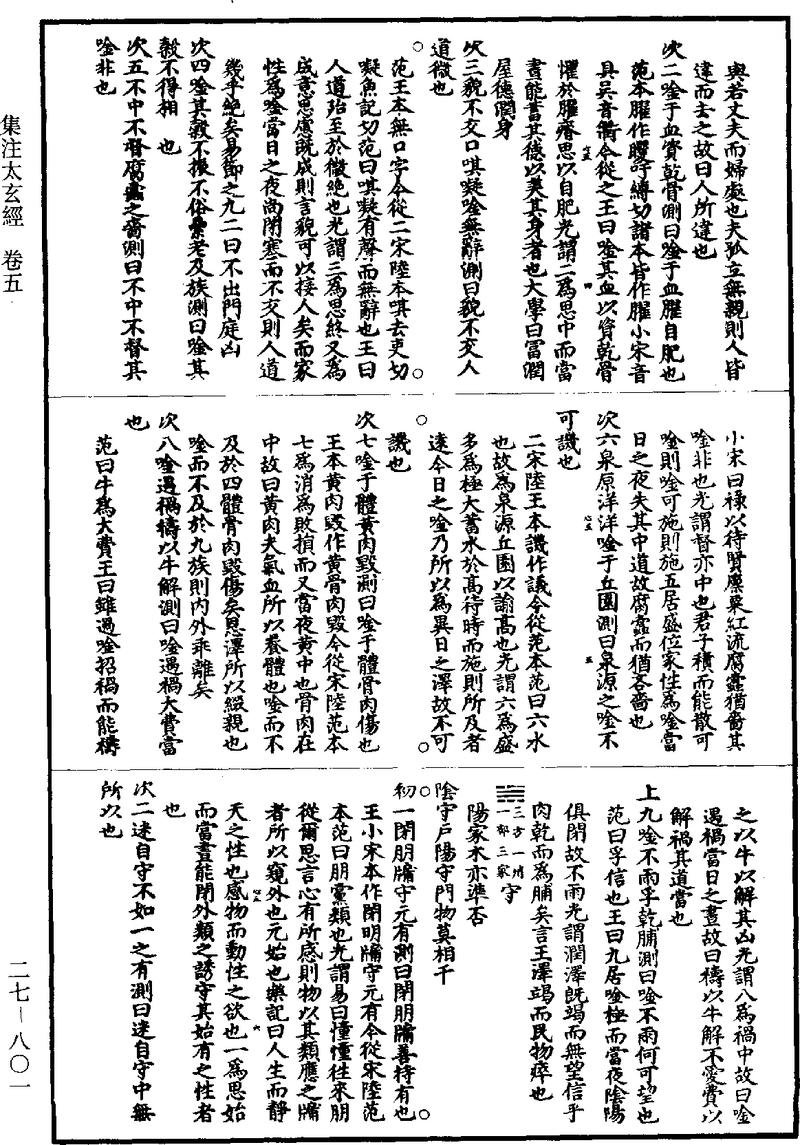 集注太玄經　卷五
二七-八〇一
與若丈夫而婦處也夫孤立無親則人皆
違而去之故曰人所違也
次二唫于血資乾骨測曰唫于血臞自肥也
范本臞作臒呼縛切諸本皆作臞小宋音
具吳音衢今從之王曰唫其血以資乾骨
懼於臞瘠思以自肥光謂二為思中而當
晝能蓄其德以美其身者也大學曰富潤
屋德潤身
次三貌不交口唭𡄱唫無辭測曰貌不交人
道微也
范王本無口字今從二宋陸本唭去吏切
𡄱魚記切范曰唭𡄱有聲而無辭也王曰
人道殆至於微絶也光謂三為思終又為
成意思慮既成則言貌可以接人矣而家
性為唫當日之夜尚閉塞而不交則人道
幾乎絶矣易節之九二曰不出門庭凶
次四唫其穀不振不俗纍老及族測曰唫其
穀不得相　也
次五不中不督腐蠹之嗇測曰不中不督其
唫非也
小宋曰祿以待賢廩粟紅流腐蠹猶嗇其
唫非也光謂督亦中也君子積而能散可
唫則唫可施則施五居盛位家性為唫當
日之夜失其中道故腐蠹而猶吝嗇也
次六泉原洋洋唫于丘園測曰泉源之唫不
可譏也
二宋陸王本譏作議今從范本范曰六水
也故為泉源丘園以諭高也光謂六為盛
多為極大蓄水於高待時而施則所及者
遠今日之唫乃所以為異日之澤故不可
譏也
次七唫于體黃肉毀測曰唫于體骨肉傷也
王本黃肉毀作黃骨肉毀今從宋陸范本
七為消為敗損而又當夜黃中也骨肉在
中故曰黃肉夫氣血所以養體也唫而不
及於四體骨肉毀傷矣恩澤所以綴親也
唫而不及於九族則內外乖離矣
次八唫遇禍禱以牛解測曰唫遇禍大費當
也
范曰牛為大費王曰雖過唫招禍而能禱
之以牛以解其凶光謂八為禍中故曰唫
遇禍當日之晝故曰禱以牛解不愛費以
解禍其道當也
上九唫不雨孚乾脯測曰唫不雨何可望也
范曰孚信也王曰九居唫極而當夜陰陽
俱閉故不雨光謂潤澤既竭而無望信乎
肉乾而為脯矣言王澤竭而民物瘁也
三方一州
一部三家
守
陽家木亦準否
陰守戶陽守門物莫相干
初一閉朋牖守元有測曰閉朋牖善持有也
王小宋本作閉明牖守元有今從宋陸范
本范曰朋黨類也光謂易曰憧憧往來朋
從爾思言心有所感則物以其類應之牖
者所以窺外也元始也樂記曰人生而靜
天之性也感物而動性之欲也一為思始
而當晝能閉外類之誘守其始有之性者
也
次二迷自守不如一之有測曰迷自守中無
所以也